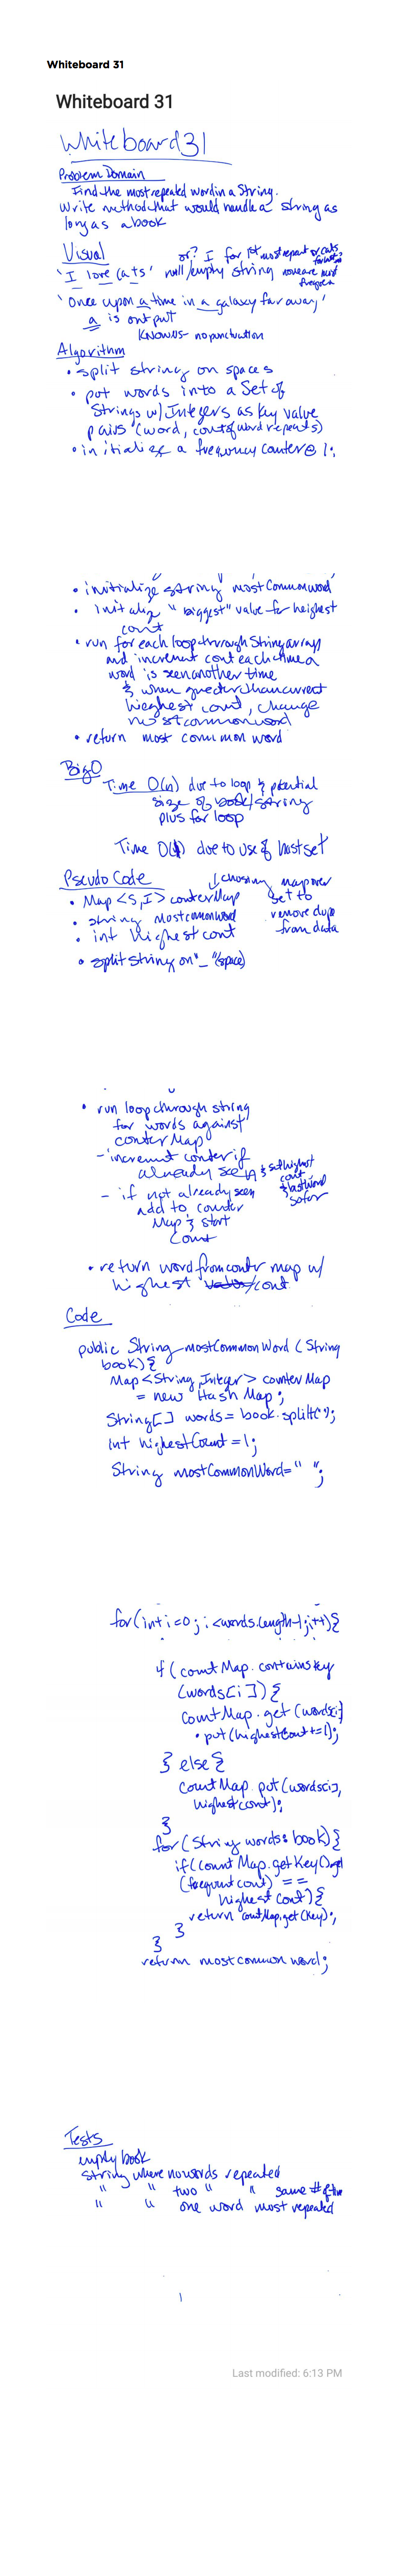 Whiteboard 31
Whiteboard 31
Whiteboard31
Problem Domain
Find the most repeated word in a String.
Write method that would handle a string as
long as a book
Visual
or? I for 1st most repeat or cats
'I love Cats' null/empty string none are most
'Once upon a time in a galaxy far away'
a is output
KNOWNS - no punctuation
Algorithm
• split string on spaces
• put words into a Set of
Strings w/ Integers as key value
pairs (word, count of word repeats)
• initialize a frequency counter @ 1;
• initialize string mostCommonWord
• Initialize "biggest" value for heighest
cont
• run for each loop through String array
and increment cont each time a
word is seen another time
& when greater than current
hieghest count, change
mostcommonword
• return most common word
Big O
Time O(n) due to loop & potential
size of book/string
plus for loop
Time O(1) due to use of hashset
Pseudo Code
↓ chosing map over
• Map <S,I> conterMap set to
• string mostcommonword remove dups
• int highest cont from data
• split string on "_" (space)
• run loop through string
for words against
conterMap
- increment conter if
already seen & set highest
cont
& last word
so far
- if not already seen
add to counter
Map & start
Count
• return word from contr map w/
highest cont
Code
public String mostCommonWord (String
book){
Map<String,Integer> counterMap
= new Hash Map;
String[] words = book.split(" ");
int highestCount = 1;
String mostCommonWord = " ";
for(int i=0; i<words.length-1; i++){
if (countMap.containsKey
(words[i]){
countMap.get(words[i]
.put(highestCount+=1);
} else{
countMap.put(words[i],
highestcont);
}
for (String words: book){
if(count Map.getKey().get
(frequent cont) ==
highest Cont){
return contMap.get(key);
}
}
return most common word;
Tests
empty book
String where no words repeated
" " two " " same # of time
" " one word most repeated
Last modified: 6:13 PM